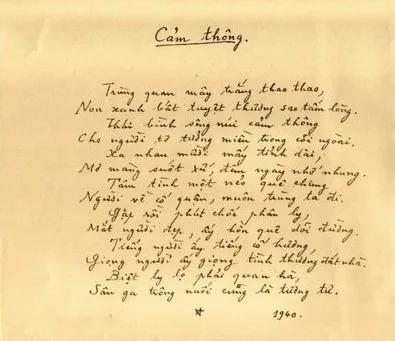 Cảm thông.
Trùng quan mây trắng thao thao,
Non xanh bát tuyệt thương sao tấm lòng.
Thái bình sông núi cảm thông
Cho người tơ tưởng miên trong cõi ngoài.
Xa nhau mười mấy tỉnh dài,
Mơ màng suốt xứ, đêm ngày nhớ nhung.
Tâm tình một nẻo quê chung,
Người về cố quận, muôn trùng ta đi.
Gặp rồi phút chốc phân ly,
Mắt người đẹp, ấy hồn quê dõi đường.
Tiếng người ấy tiếng cố hương,
Giọng người ấy giọng tình thương đất nhà.
Biệt ly lọ phải quan hà,
Sân ga trông nuối cũng là tương tư.
*
1940.